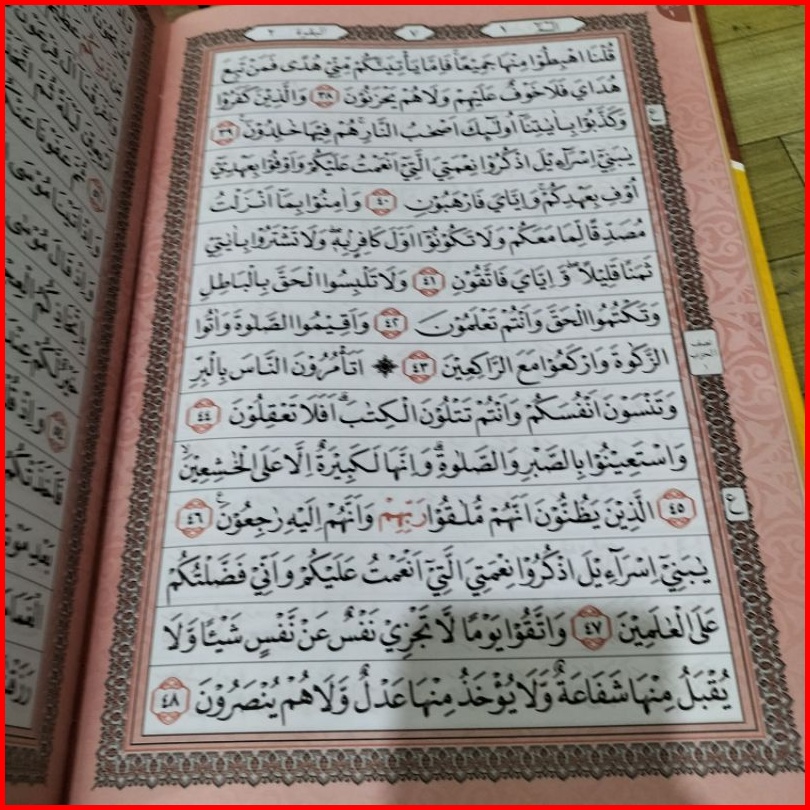 البقرة ٢
٧
الم ١
قُلْنَا اهْبِطُوْا مِنْهَا جَمِيْعًا ۚ فَاِمَّا يَأْتِيَنَّكُمْ مِّنِّيْ هُدًى فَمَنْ تَبِعَ
هُدَايَ فَلَا خَوْفٌ عَلَيْهِمْ وَلَا هُمْ يَحْزَنُوْنَ ٣٨ وَالَّذِيْنَ كَفَرُوْا
وَكَذَّبُوْا بِاٰيٰتِنَآ اُولٰۤىِٕكَ اَصْحٰبُ النَّارِ ۚ هُمْ فِيْهَا خٰلِدُوْنَ ࣖ ٣٩
يٰبَنِيْٓ اِسْرَاۤءِيْلَ اذْكُرُوْا نِعْمَتِيَ الَّتِيْٓ اَنْعَمْتُ عَلَيْكُمْ وَاَوْفُوْا بِعَهْدِيْٓ
اُوْفِ بِعَهْدِكُمْۚ وَاِيَّايَ فَارْهَبُوْنِ ٤٠ وَاٰمِنُوْا بِمَآ اَنْزَلْتُ
مُصَدِّقًا لِّمَا مَعَكُمْ وَلَا تَكُوْنُوْٓا اَوَّلَ كَافِرٍۢ بِهٖ ۖ وَلَا تَشْتَرُوْا بِاٰيٰتِيْ
ثَمَنًا قَلِيْلًا ۖ وَّاِيَّايَ فَاتَّقُوْنِ ٤١ وَلَا تَلْبِسُوا الْحَقَّ بِالْبَاطِلِ
وَتَكْتُمُوا الْحَقَّ وَاَنْتُمْ تَعْلَمُوْنَ ٤٢ وَاَقِيْمُوا الصَّلٰوةَ وَاٰتُوا
الزَّكٰوةَ وَارْكَعُوْا مَعَ الرَّاكِعِيْنَ ٤٣ ۞ اَتَأْمُرُوْنَ النَّاسَ بِالْبِرِّ
وَتَنْسَوْنَ اَنْفُسَكُمْ وَاَنْتُمْ تَتْلُوْنَ الْكِتٰبَ ۗ اَفَلَا تَعْقِلُوْنَ ٤٤
وَاسْتَعِيْنُوْا بِالصَّبْرِ وَالصَّلٰوةِ ۗ وَاِنَّهَا لَكَبِيْرَةٌ اِلَّا عَلَى الْخٰشِعِيْنَۙ
٤٥ الَّذِيْنَ يَظُنُّوْنَ اَنَّهُمْ مُّلٰقُوْا رَبِّهِمْ وَاَنَّهُمْ اِلَيْهِ رٰجِعُوْنَ ࣖ ٤٦
يٰبَنِيْٓ اِسْرَاۤءِيْلَ اذْكُرُوْا نِعْمَتِيَ الَّتِيْٓ اَنْعَمْتُ عَلَيْكُمْ وَاَنِّيْ فَضَّلْتُكُمْ
عَلَى الْعٰلَمِيْنَ ٤٧ وَاتَّقُوْا يَوْمًا لَّا تَجْزِيْ نَفْسٌ عَنْ نَّفْسٍ شَيْـًٔا وَّلَا
يُقْبَلُ مِنْهَا شَفَاعَةٌ وَّلَا يُؤْخَذُ مِنْهَا عَدْلٌ وَّلَا هُمْ يُنْصَرُوْنَ ٤٨
ع
نصف
الحزب
١
ع